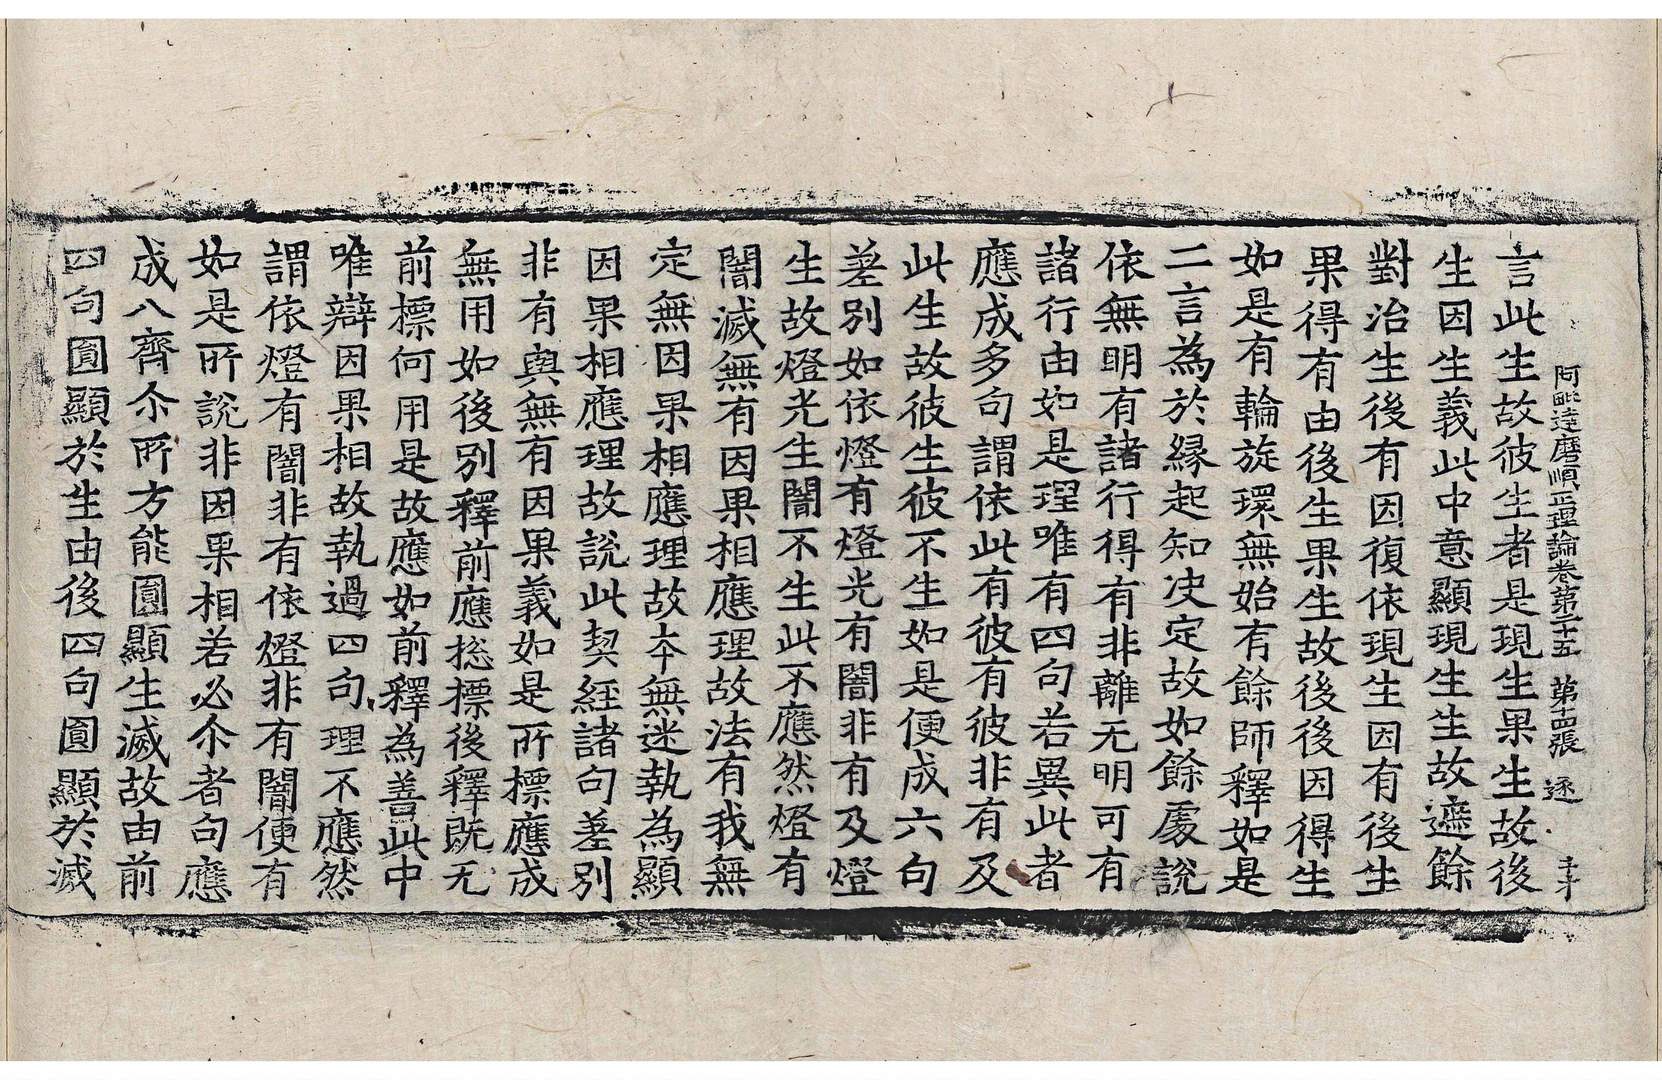 阿毗達磨順正理論卷第二十五 第十四張 逐
言此生故彼生者是現生果生故後
生因生義此中意顯現生生故遮餘
對治生後有因復依現生因有後生
果得有由後生果生故後後因得生
如是有輪旋環無始有餘師釋如是
二言為於緣起知决定故如餘處說
依無明有諸行得有非離无明可有
諸行由如是理唯有四句若異此者
應成多句謂依此有彼有彼非有及
此生故彼生彼不生如是便成六句
差別如依燈有燈光有闇非有及燈
生故燈光生闇不生此不應然燈有
闇滅無有因果相應理故法有我無
定無因果相應理故夲無迷執為顯
因果相應理故說此契經諸句差別
非有與無有因果義如是所標應成
無用如後別釋前應捴標後釋既无
前標何用是故應如前釋為善此中
唯辯因果相故執過四句理不應然
謂依燈有闇非有依燈非有闇便有
如是所說非因果相若必尒者句應
成八齊尒所方能圓顯生滅故由前
四句圓顯於生由後四句圓顯於滅